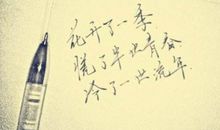 花开了一季
慌了半世青春
冷了一世流年